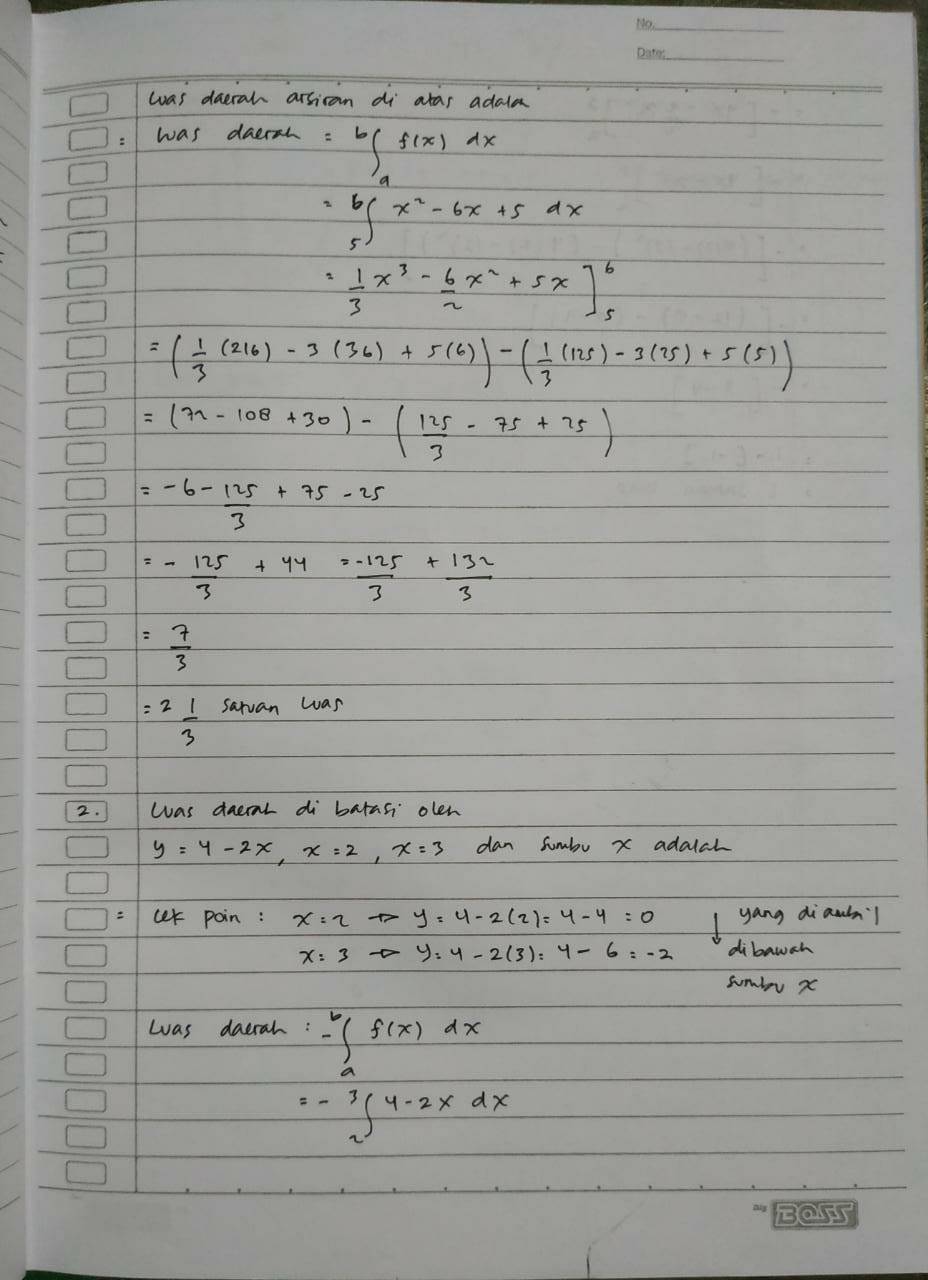 No.
Date:
Luas daerah arsiran di atas adalah
= Luas daerah = b∫a f(x) dx
= 6∫5 x² - 6x + 5 dx
= 1/3 x³ - 6/2 x² + 5x ]6 5
= (1/3 (216) - 3 (36) + 5(6)) - (1/3 (125) - 3(25) + 5(5))
= (72 - 108 + 30) - (125/3 - 75 + 25)
= -6 - 125/3 + 75 - 25
= - 125/3 + 44 = -125/3 + 132/3
= 7/3
= 2 1/3 satuan luas
2. Luas daerah di batasi oleh
y = 4 - 2x, x = 2, x = 3 dan sumbu x adalah
= cek poin : x = 2 → y = 4 - 2(2) = 4 - 4 = 0 ↓ yang diambil
x = 3 → y = 4 - 2(3) = 4 - 6 = -2 dibawah
sumbu x
Luas daerah : - b∫a f(x) dx
= - 3∫2 4 - 2x dx
Big BOSS